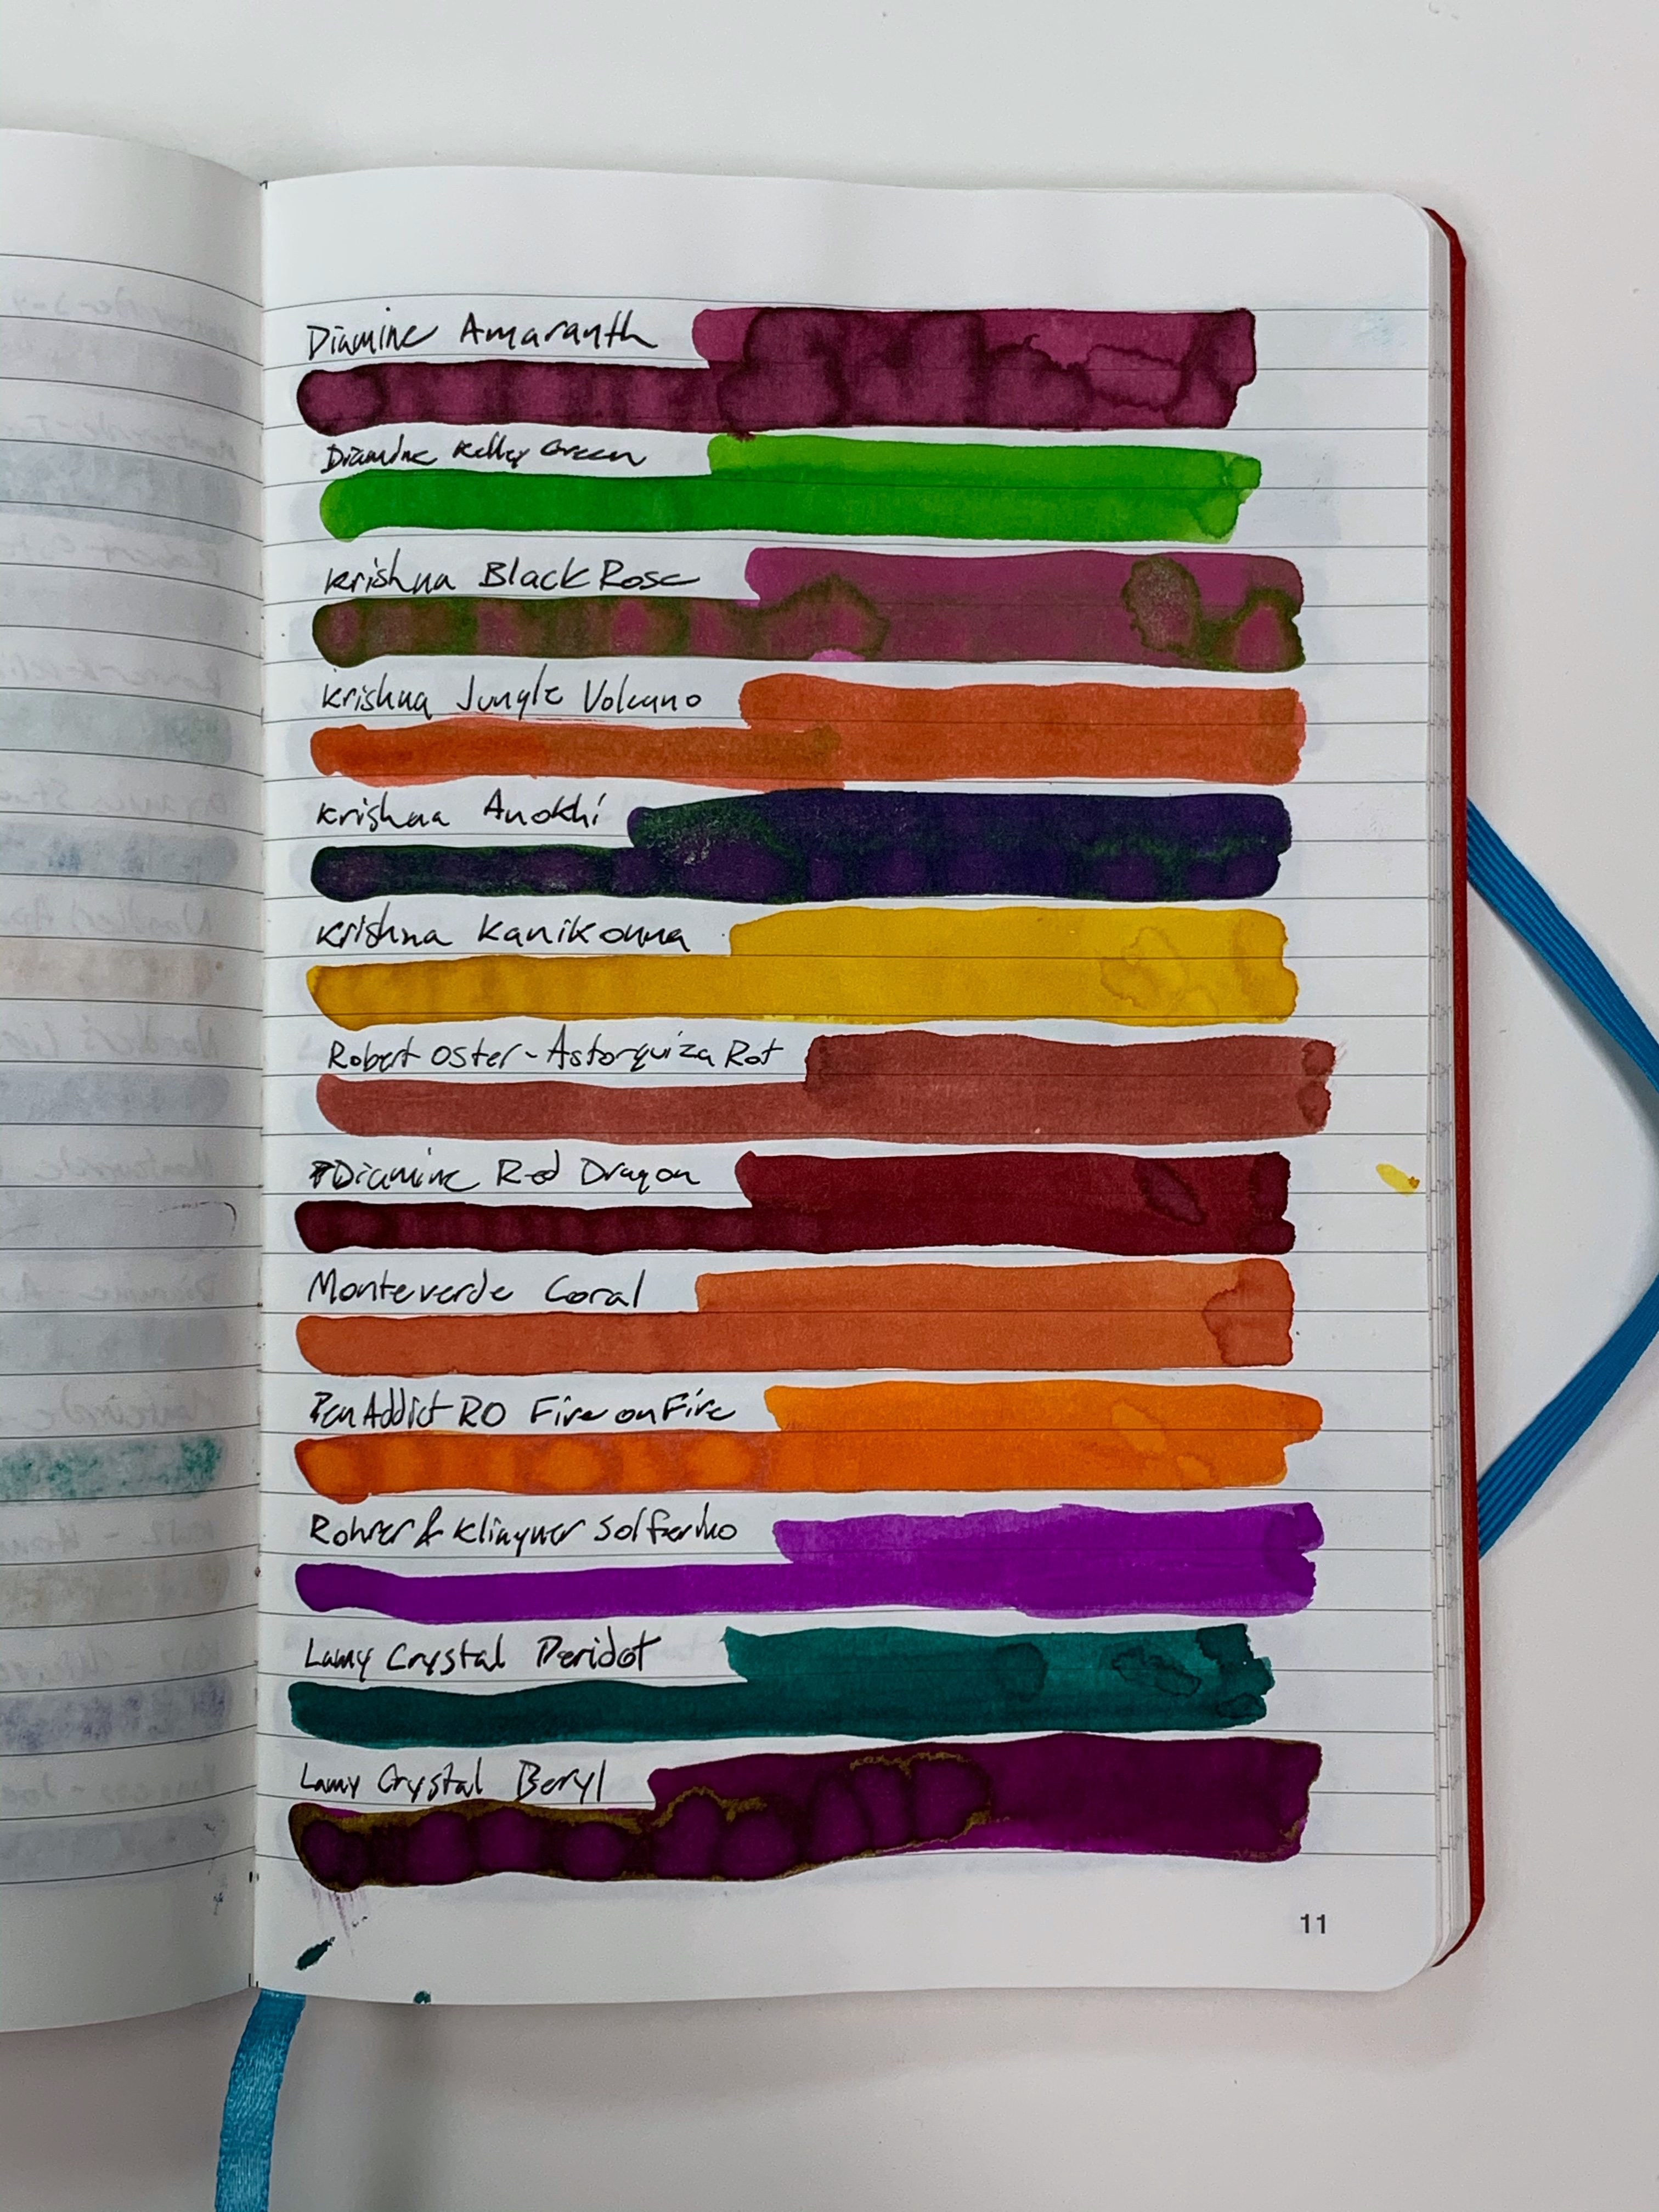 Diamine Amaranth
Diamine Kelly Green
Krishna Black Rose
Krishna Jungle Volcano
Krishna Anokhi
Krishna Kanikonna
Robert Oster - Astorquiza Rot
Diamine Red Dragon
Monteverde Coral
Pen Addict RO Fire on Fire
Rohrer & Klingner Solferino
Lamy Crystal Peridot
Lamy Crystal Beryl
11